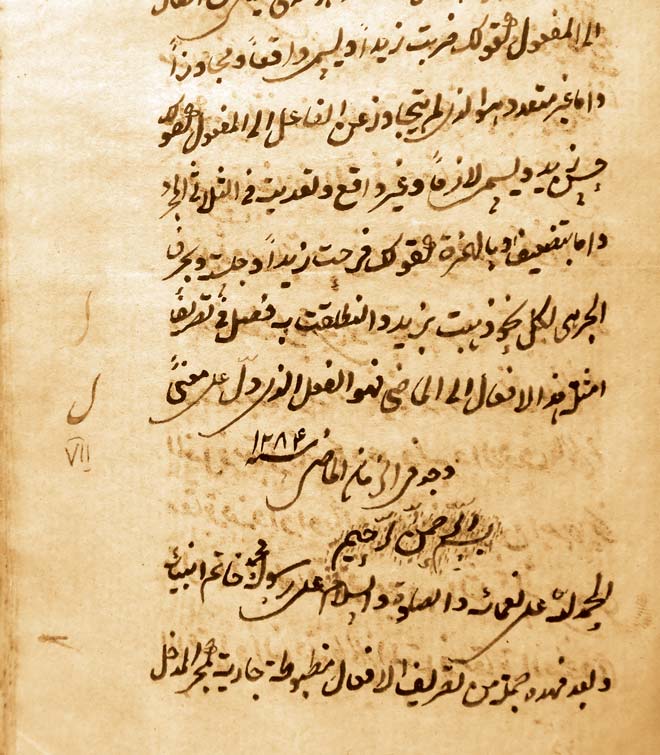 الى المفعول كقولك ضربت زيداً ويسمى واقعاً ومجاوزاً
واما غير متعد وهو الذى لم يتجاوز عن الفاعل الى المفعول كقولك
حسن زيد ويسمى لازماً وغير واقع وتعديته فى الثلاثى المجرد
واما بتضعيف او بالهمزة كقولك فرحت زيداً و وبحرف
الجر فى الكل نحو ذهبت بزيد وانطلقت به فصل فى تصريف
امثلة هذه الافعال اما الماضى فهو الفعل الذى دلّ على معنىً
وجد فى الزمان الماضى سنة ١٢٨۴
بسم الله الرحمن الرحيم
الحمد لله على نعمائه والصلوة والسلام على رسوله محمد خاتم انبيائه
وبعد فهذه جملة من تصريف الافعال مضبوطة جارية المدخل
ل
VII